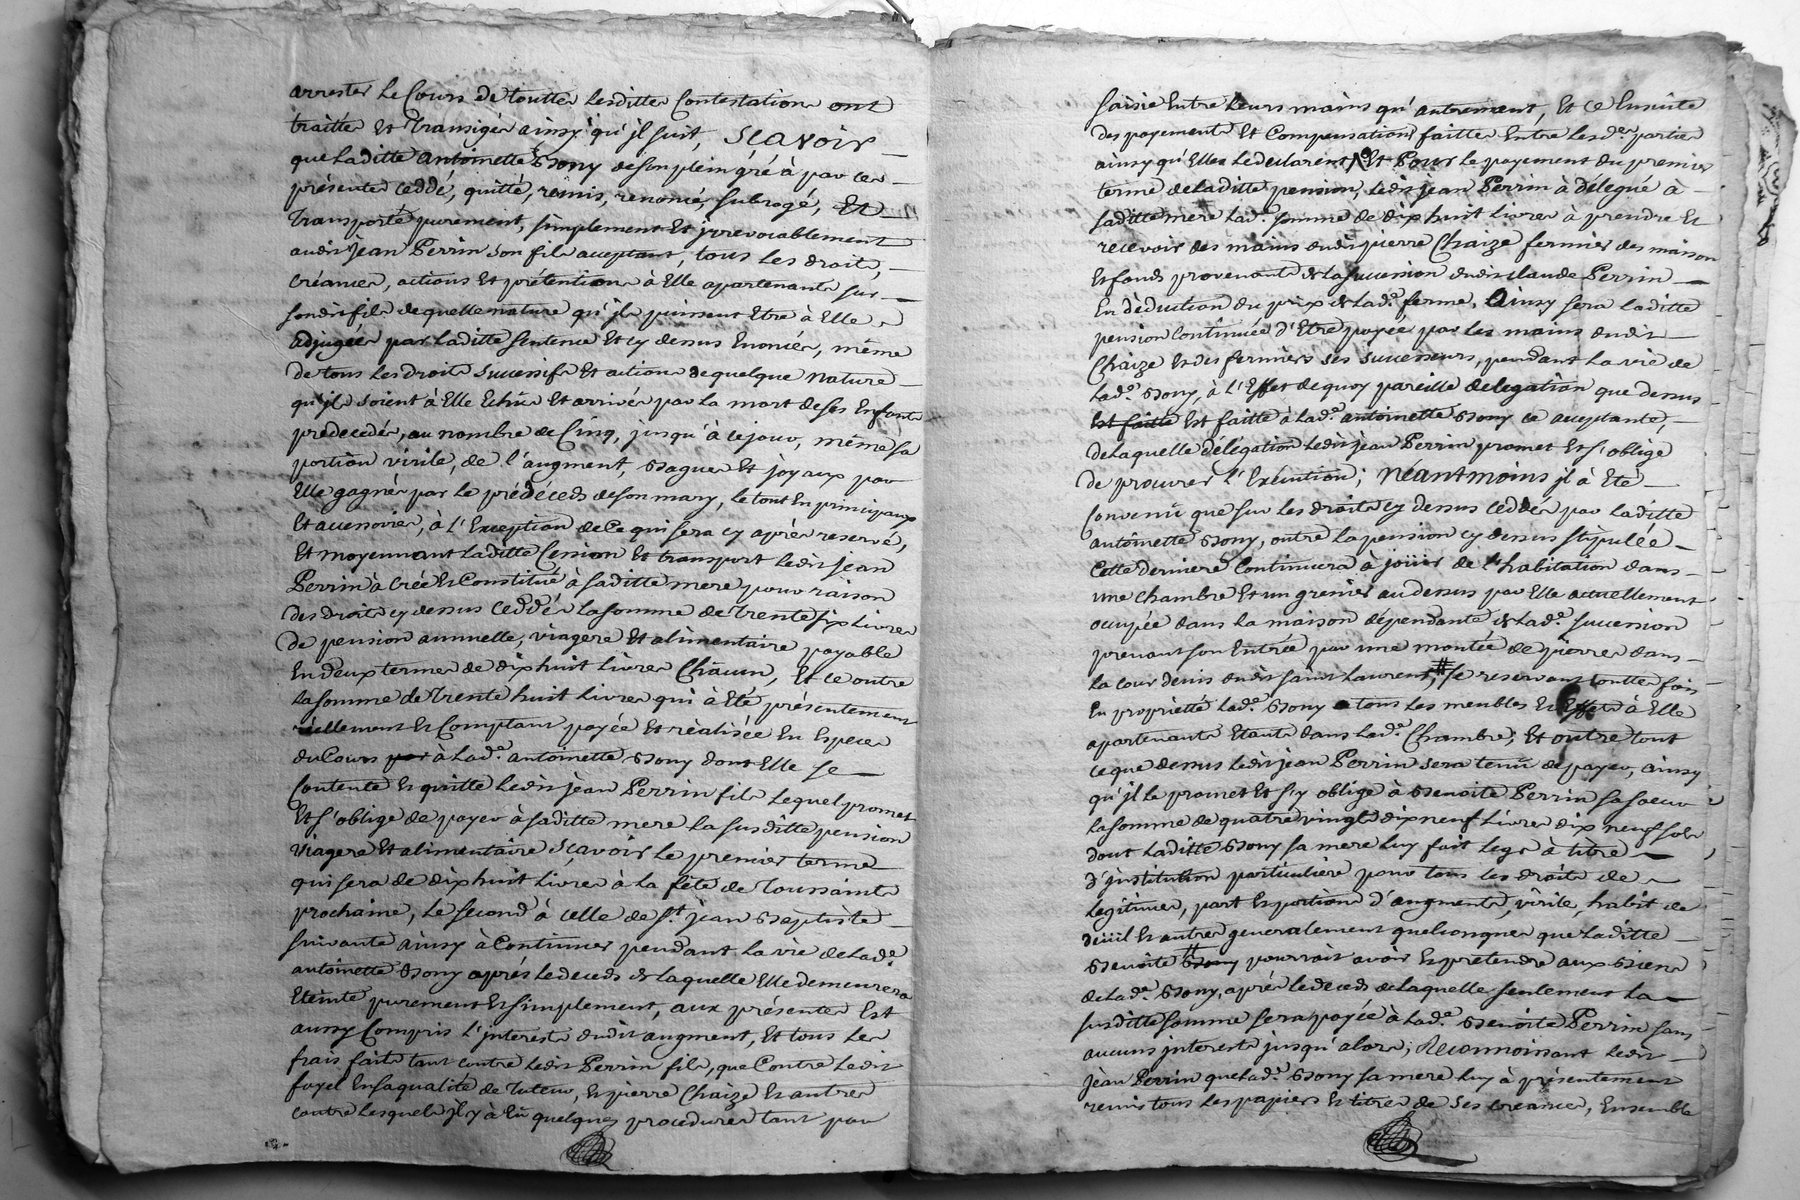 arrester le Cours de touttes lesdittes Contestations ont
traitté Et Transigés ainsy qu'jl suit, SCAVOIR
que laditte Antoinette Bony de son plein gré à par ces
présentes ceddé, quitté, remis, renoncé, subrogé, Et
Transporté purement, simplement Et jrrevocablement
audit jean Perrin son fils acceptant, tous les droits,
Créances, actions Et prétentions à Elle apartenants sur
sondit fils de quelle nature qu'jls puissent Etre à Elle
adjugées par laditte sentence Et cy dessus Enoncés, même
de tous les droits successifs Et actions de quelque nature
qu'jls soient à Elle Echûs Et arrivés par la mort de ses Enfants
predecedés, au nombre de Cinq, jusqu'à ce jour, même sa
portion virile, de l'augment, Bagues Et joyaux par
Elle gagnés par le prédéceds de son mary, le tout En principaux
Et accessoires, à l'Exception de Ce qui sera cy après reservé,
Et moyennant laditte Cession Et transport ledit jean
Perrin à Créé Et Constitué à saditte mere pour raison
des droits cy dessus Ceddés la somme de Trente six Livres
de pension annuelle, viagere Et alimentaire payable
En deux termes de dix huit Livres Chacun, Et ce outre
la somme de Trente huit Livres qui à Eté présentement
réellement Et Comptant payée Et réalisée En Especes
du Cours par à lad.e antoinette Bony dont Elle se
Contente Et quitte ledit jean Perrin fils lequel promet
Et s'oblige de payer à saditte mere la susditte pension
Viagere Et alimentaire Sçavoir le premier terme
qui sera de dix huit Livres à la fête de Toussaints
prochaine, le second à celle de S.t jean Baptiste
suivante ainsy à Continuer pendant la vie de lad.e
antoinette Bony après le deceds de laquelle Elle demeurera
Eteinte purement Et simplement, aux présentes Est
aussy Compris l'interest dudit augment, Et tous les
frais faits tant contre ledit Perrin fils, que Contre ledit
fayel En sa qualité de Tuteur, Et pierre Chaize Et autres
contre lesquels jl y à Eû quelques procedures tant par
saisie Entre leurs mains qu'autrement, Et ce Ensuite
des payements Et Compensations faittes Entre lesd.es parties
ainsy qu'Elles le declarent, Et Pour le payement du premier
terme de laditte pension, ledit jean Perrin à délegué à
saditte mere lad.e somme de dix huit Livres à prendre Et
recevoir des mains dudit pierre Chaize fermier des maison
Et fonds provenants de la succession dudit claude Perrin
En déduction du prix de lad.e ferme, Ainsy sera laditte
pension Continuée d'Etre payée par les mains dudit
Chaize Et des fermiers ses successeurs, pendant la vie de
lad.e Bony, à l'Effet de quoy pareille delegation que dessus
Est faitte Est faitte à lad.e antoinette Bony ce acceptante,
de laquelle délégation ledit jean Perrin promet Et s'oblige
de procurer l'Exécution; NéantMoins jl à Eté
Convenû que sur les droits cy dessus Ceddés par laditte
antoinette Bony, outre la pension cy dessus stipulée
Cette derniere Continuera à joüir de l'habitation dans
une chambre Et un grenier au dessus par Elle actuellement
occupée dans la maison dépendante de lad.e succession
prenant son Entrée par une montée de pierres dans
la cour denis dudit saint Laurent, # se reservant touttes fois
En proprieté lad.e Bony tous les meubles Et Effets à Elle
apartenants Etants dans lad.e Chambre, Et outre tout
ce que dessus ledit jean Perrin sera tenû de payer, ainsy
qu'jl le promet Et s'y oblige à Benoite Perrin sa soeur
la somme de quatre vingt dix neuf Livres dix neuf sols
dont laditte Bony sa mere luy fait legs à titre
d'jnstitution particulière pour tous les droits de
legitimes, part Et portions d'augments, virile, habit de
deüil Et autres generalement quelconques que laditte
Benoite # Bony pourroit avoir Et pretendre aux Biens
de lad.e Bony, après le deceds de laquelle seulement la
susditte somme sera payée à lad.e Benoite Perrin sans
aucuns jnterests jusqu'alors; Reconnoissant ledit
jean Perrin que lad.e Bony sa mere luy à présentement
remis tous les papiers Et titres de ses creances, Ensemble